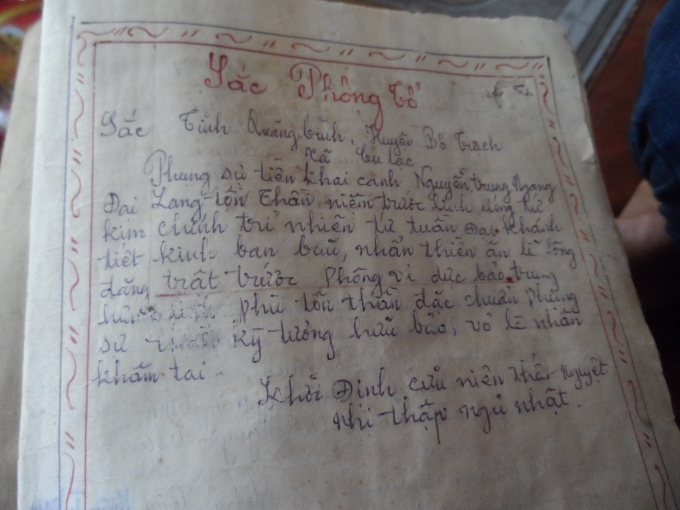 Sắc Phong tổ
Sắc Tỉnh Quảng bình, Huyện Bố Trạch
Xã Cù lạc
Phụng sự tiền khai canh Nguyễn trung Ngang
Đại Lang tôn Thần niệm trước linh ứng tứ
kim chính trị nhiên tứ tuần Đại khánh
tiết kinh ban bữu, nhân thiên ân lễ long
đăng trật trước phong vi dực bảo trung
phù tôn thần đặc chuẩn phụng
sự kỳ tương hữu bảo, vỏ lê nhân
khâm tai.
Khải Định cửu niên thất Nguyệt
nhị thập ngủ nhật.